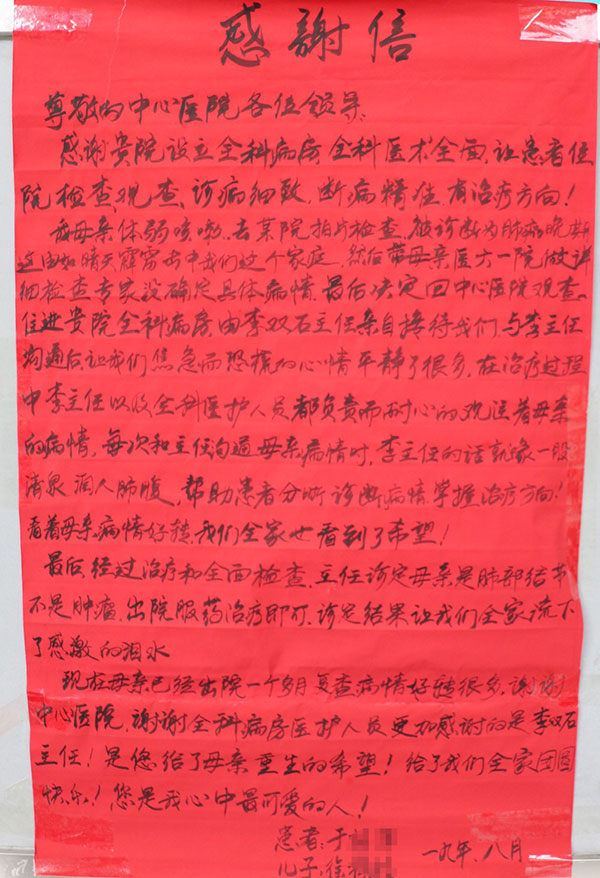 感謝信
尊敬的中心医院各位领导
感谢贵院设立全科病房全科医术全面,让患者住
院检查,观查,诊病细致,断病精准,有治疗方向!
我母亲体弱咳嗽,去某院拍片检查,被诊断为肺癌晚期
这由如晴天霹雳击中我们这个家庭,然后带母亲医大一院做详
细检查专家没确定具体病情,最后决定回中心医院观查,
住进贵院全科病房,由李双石主任亲自接待我们,与李主任
沟通后,让我们焦急而恐慌的心情平静了很多,在治疗过程
中李主任以及全科医护人员都负责而耐心的观注着母亲
的病情,每次和主任沟通母亲病情时,李主任的话就像一股
清泉润人肺腹,帮助患者分断诊断病情,掌握治疗方向!
看着母亲病情好转,我们全家也看到了希望!
最后,经过治疗和全面检查,主任诊定母亲是肺部结节
不是肿瘤,出院服药治疗即可,诊定结果让我们全家流下
了感激的泪水
现在母亲已经出院一个多月复查病情好转很多,谢谢
中心医院,谢谢全科病房医护人员更加感谢的是李双石
主任!是您给了母亲重生的希望!给了我们全家团圆
快乐!您是我心中最可爱的人!
患者:于
儿子:徐
一九年,八月